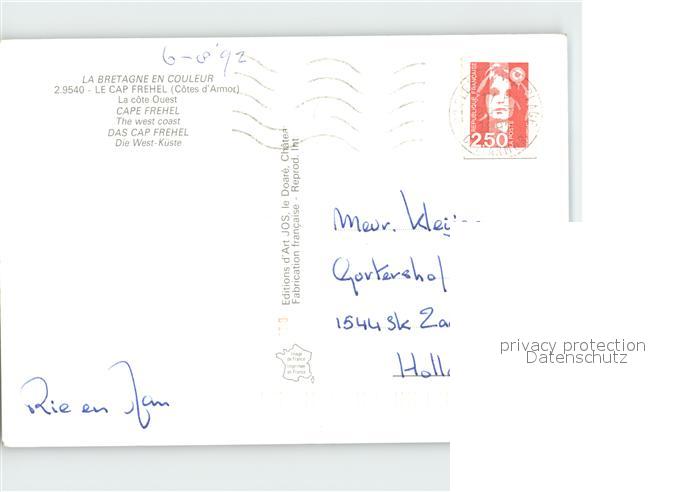 6-8'92
LA BRETAGNE EN COULEUR
2.9540 - LE CAP FREHEL (Côtes d'Armor)
La côte Ouest
CAPE FREHEL
The west coast
DAS CAP FREHEL
Die West-Küste
REPUBLIQUE FRANÇAISE
LA POSTE
2,50
Editions d'Art JOS, le Doaré, Châtea
Fabrication française - Reprod. Int
Mevr. Kleij
Gortershof
1544 SK Za
Holla
Image
de France
Imprimée
en France
Rie en Jan
privacy protection
Datenschutz